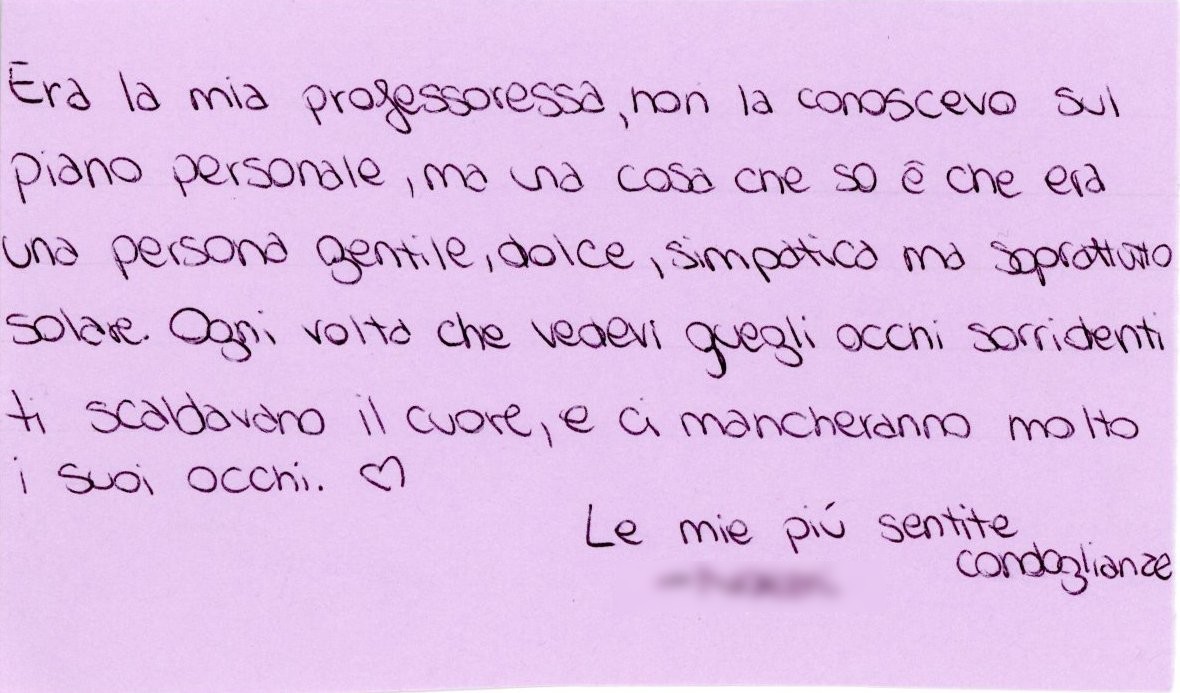 Era la mia professoressa, non la conoscevo sul
piano personale, ma una cosa che so è che era
una persona gentile, dolce, simpatica ma soprattutto
solare. Ogni volta che vedevi quegli occhi sorridenti
ti scaldavano il cuore, e ci mancheranno molto
i suoi occhi. ♡
Le mie più sentite
condoglianze